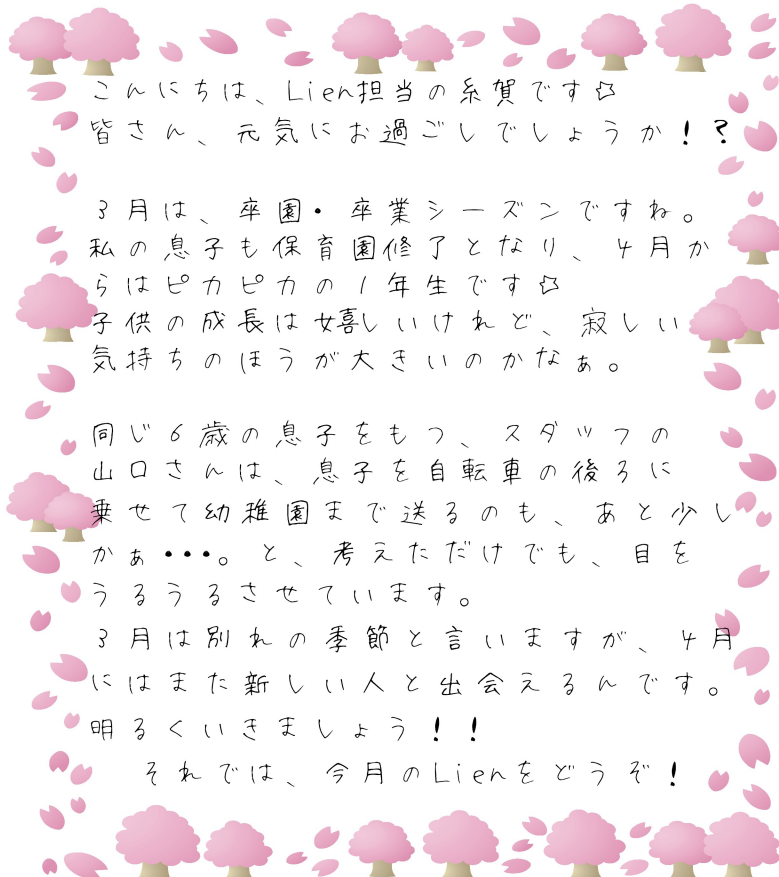 こんにちは、Lien担当の糸賀です☆
皆さん、元気にお過ごしでしょうか！？
３月は、卒園・卒業シーズンですね。
私の息子も保育園修了となり、４月か
らはピカピカの１年生です☆
子供の成長は嬉しいけれど、寂しい
気持ちのほうが大きいのかなぁ。
同じ６歳の息子をもつ、スタッフの
山口さんは、息子を自転車の後ろに
乗せて幼稚園まで送るのも、あと少し
かぁ・・・。と、考えただけでも、目を
うるうるさせています。
３月は別れの季節と言いますが、４月
にはまた新しい人と出会えるんです。
明るくいきましょう！！
それでは、今月のLienをどうぞ！